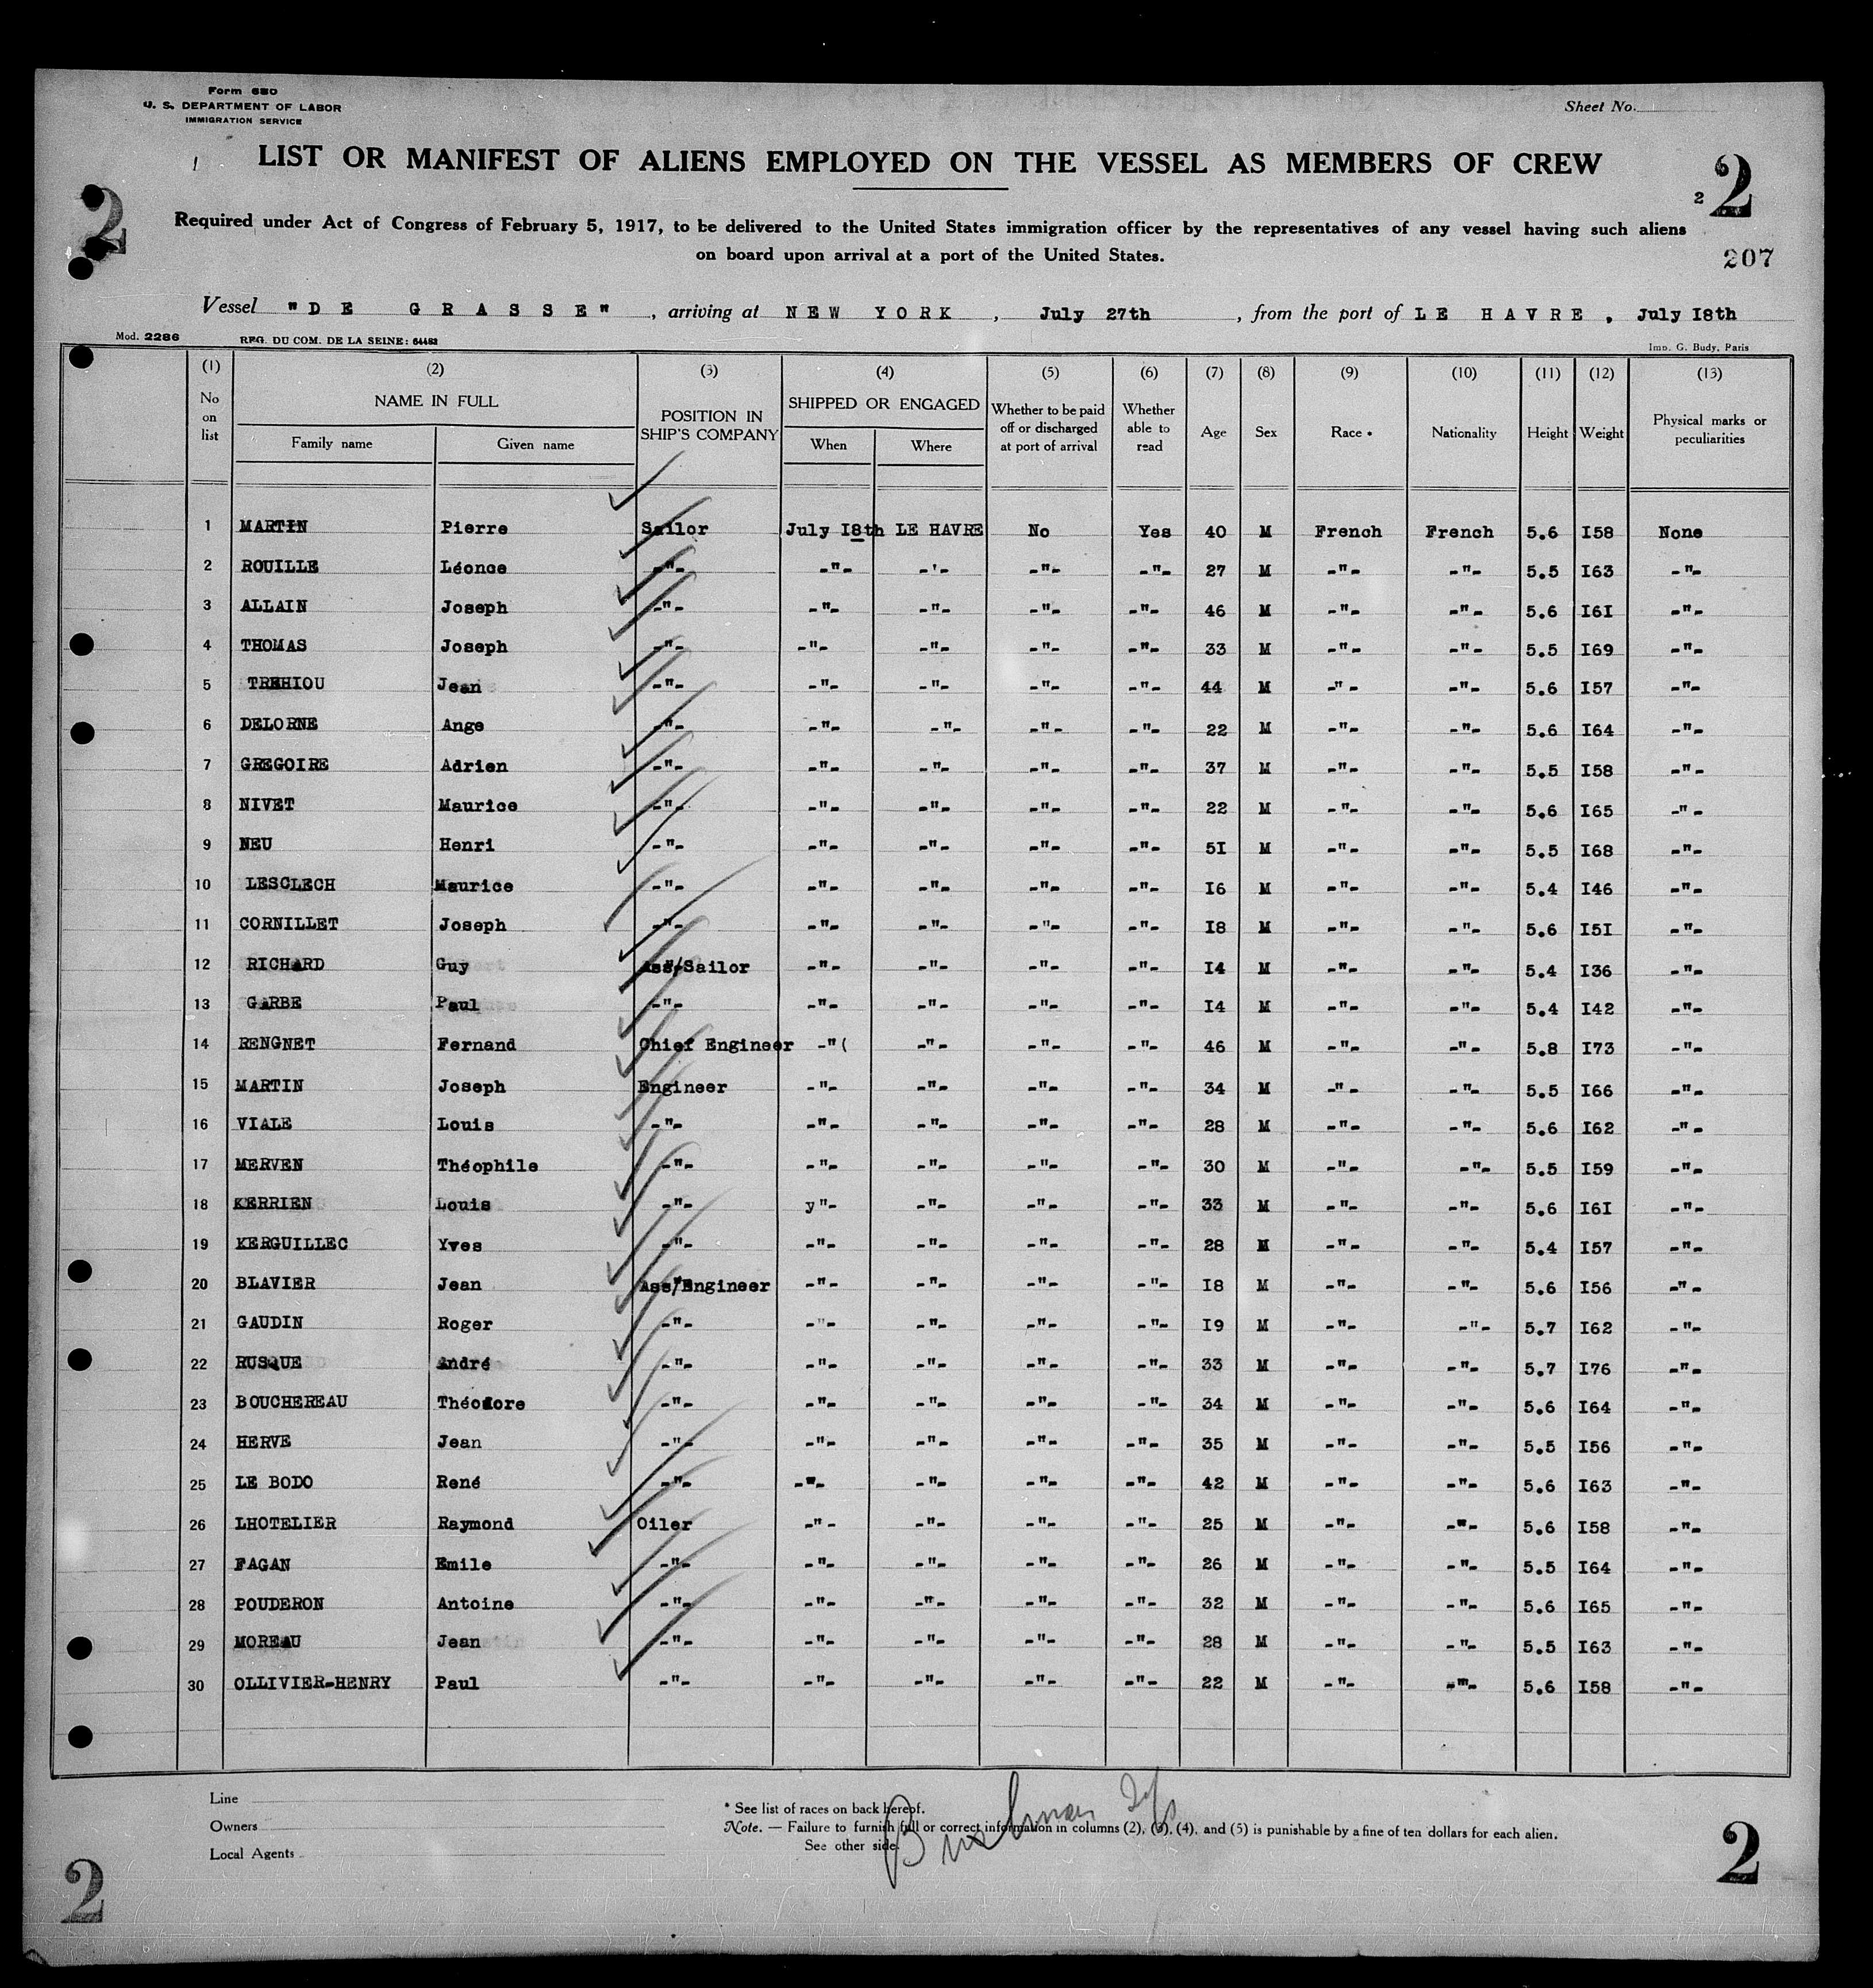 Form 680
U. S. DEPARTMENT OF LABOR
IMMIGRATION SERVICE
Sheet No.
LIST OR MANIFEST OF ALIENS EMPLOYED ON THE VESSEL AS MEMBERS OF CREW
2
2 2
Required under Act of Congress of February 5, 1917, to be delivered to the United States immigration officer by the representatives of any vessel having such aliens
on board upon arrival at a port of the United States.
207
Vessel "DE GRASSE", arriving at NEW YORK, July 27th, from the port of LE HAVRE, July I8th
Mod. 2286 REG. DU COM. DE LA SEINE: 64482 Imp. G. Budy, Paris
(1) (2) (3) (4) (5) (6) (7) (8) (9) (10) (11) (12) (13)
No on list NAME IN FULL Family name Given name POSITION IN SHIP'S COMPANY SHIPPED OR ENGAGED When Where Whether to be paid off or discharged at port of arrival Whether able to read Age Sex Race * Nationality Height Weight Physical marks or peculiarities
1 MARTIN Pierre Sailor July I8th LE HAVRE No Yes 40 M French French 5.6 I58 None
2 ROUILLE Léonce -"- -"- -'- -"- -"- 27 M -"- -"- 5.5 I63 -"-
3 ALLAIN Joseph -"- -"- -"- -"- -"- 46 M -"- -"- 5.6 I6I -"-
4 THOMAS Joseph -"- -"- -"- -"- -"- 33 M -"- -"- 5.5 I69 -"-
5 TREHIOU Jean -"- -"- -"- -"- -"- 44 M -"- -"- 5.6 I57 -"-
6 DELORNE Ange -"- -"- -"- -"- -"- 22 M -"- -"- 5.6 I64 -"-
7 GREGOIRE Adrien -"- -"- -"- -"- -"- 37 M -"- -"- 5.5 I58 -"-
8 NIVET Maurice -"- -"- -"- -"- -"- 22 M -"- -"- 5.6 I65 -"-
9 NEU Henri -"- -"- -"- -"- -"- 5I M -"- -"- 5.5 I68 -"-
10 LESCLECH Maurice -"- -"- -"- -"- -"- I6 M -"- -"- 5.4 I46 -"-
11 CORNILLET Joseph -"- -"- -"- -"- -"- I8 M -"- -"- 5.6 I5I -"-
12 RICHARD Guy Ass/Sailor -"- -"- -"- -"- I4 M -"- -"- 5.4 I36 -"-
13 GARBE Paul -"- -"- -"- -"- -"- I4 M -"- -"- 5.4 I42 -"-
14 RENGNET Fernand Chief Engineer -"( -"- -"- -"- 46 M -"- -"- 5.8 I73 -"-
15 MARTIN Joseph Engineer -"- -"- -"- -"- 34 M -"- -"- 5.5 I66 -"-
16 VIALE Louis -"- -"- -"- -"- -"- 28 M -"- -"- 5.6 I62 -"-
17 MERVEN Théophile -"- -"- -"- -"- -"- 30 M -"- -"- 5.5 I59 -"-
18 KERRIEN Louis -"- y"- -"- -"- -"- 33 M -"- -"- 5.6 I6I -"-
19 KERGUILLEC Yves -"- -"- -"- -"- -"- 28 M -"- -"- 5.4 I57 -"-
20 BLAVIER Jean Ass/Engineer -"- -"- -"- -"- I8 M -"- -"- 5.6 I56 -"-
21 GAUDIN Roger -"- -"- -"- -"- -"- I9 M -"- -"- 5.7 I62 -"-
22 RUSQUE André -"- -"- -"- -"- -"- 33 M -"- -"- 5.7 I76 -"-
23 BOUCHEREAU Théodore -"- -"- -"- -"- -"- 34 M -"- -"- 5.6 I64 -"-
24 HERVE Jean -"- -"- -"- -"- -"- 35 M -"- -"- 5.5 I56 -"-
25 LE BODO René -"- -"- -"- -"- -"- 42 M -"- -"- 5.6 I63 -"-
26 LHOTELIER Raymond Oiler -"- -"- -"- -"- 25 M -"- -"- 5.6 I58 -"-
27 FAGAN Emile -"- -"- -"- -"- -"- 26 M -"- -"- 5.5 I64 -"-
28 POUDERON Antoine -"- -"- -"- -"- -"- 32 M -"- -"- 5.6 I65 -"-
29 MOREAU Jean -"- -"- -"- -"- -"- 28 M -"- -"- 5.5 I63 -"-
30 OLLIVIER-HENRY Paul -"- -"- -"- -"- -"- 22 M -"- -"- 5.6 I58 -"-
Line
Owners
Local Agents
* See list of races on back hereof.
Note. — Failure to furnish full or correct information in columns (2), (3), (4), and (5) is punishable by a fine of ten dollars for each alien.
See other side.
2
2